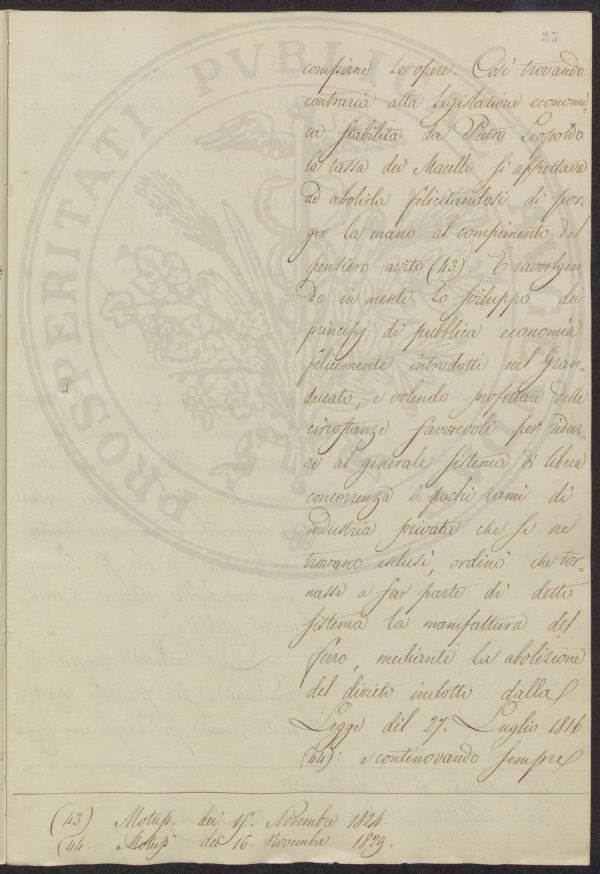 35
compirne le opere. Così trovando
contraria alla legislazione economi-
ca stabilita da Pietro Leopoldo
la tassa dei Macelli si affrettava
ad abolirla felicitandosi di por-
ger la mano al compimento del
pensiero avito (43). E ravvolgen-
do in mente lo sviluppo dei
principj di pubblica economia
felicemente introdotti nel Gran-
ducato, e volendo profittare delle
circostanze favorevoli per ridur-
re al generale sistema di libera
concorrenza i pochi rami di
industria privata che se ne
trovano esclusi, ordinò che tor-
nasse a far parte di detto
sistema la manifattura del
ferro, mediante la abolizione
del divieto indotto dalla
Legge del 27. Luglio 1816
(44): e continovando sempre
(43) Motup. dei 15. Novembre 1824.
(44. Motup dei 16. Novembre 1829.
PROSPERITATI PVBLICAE